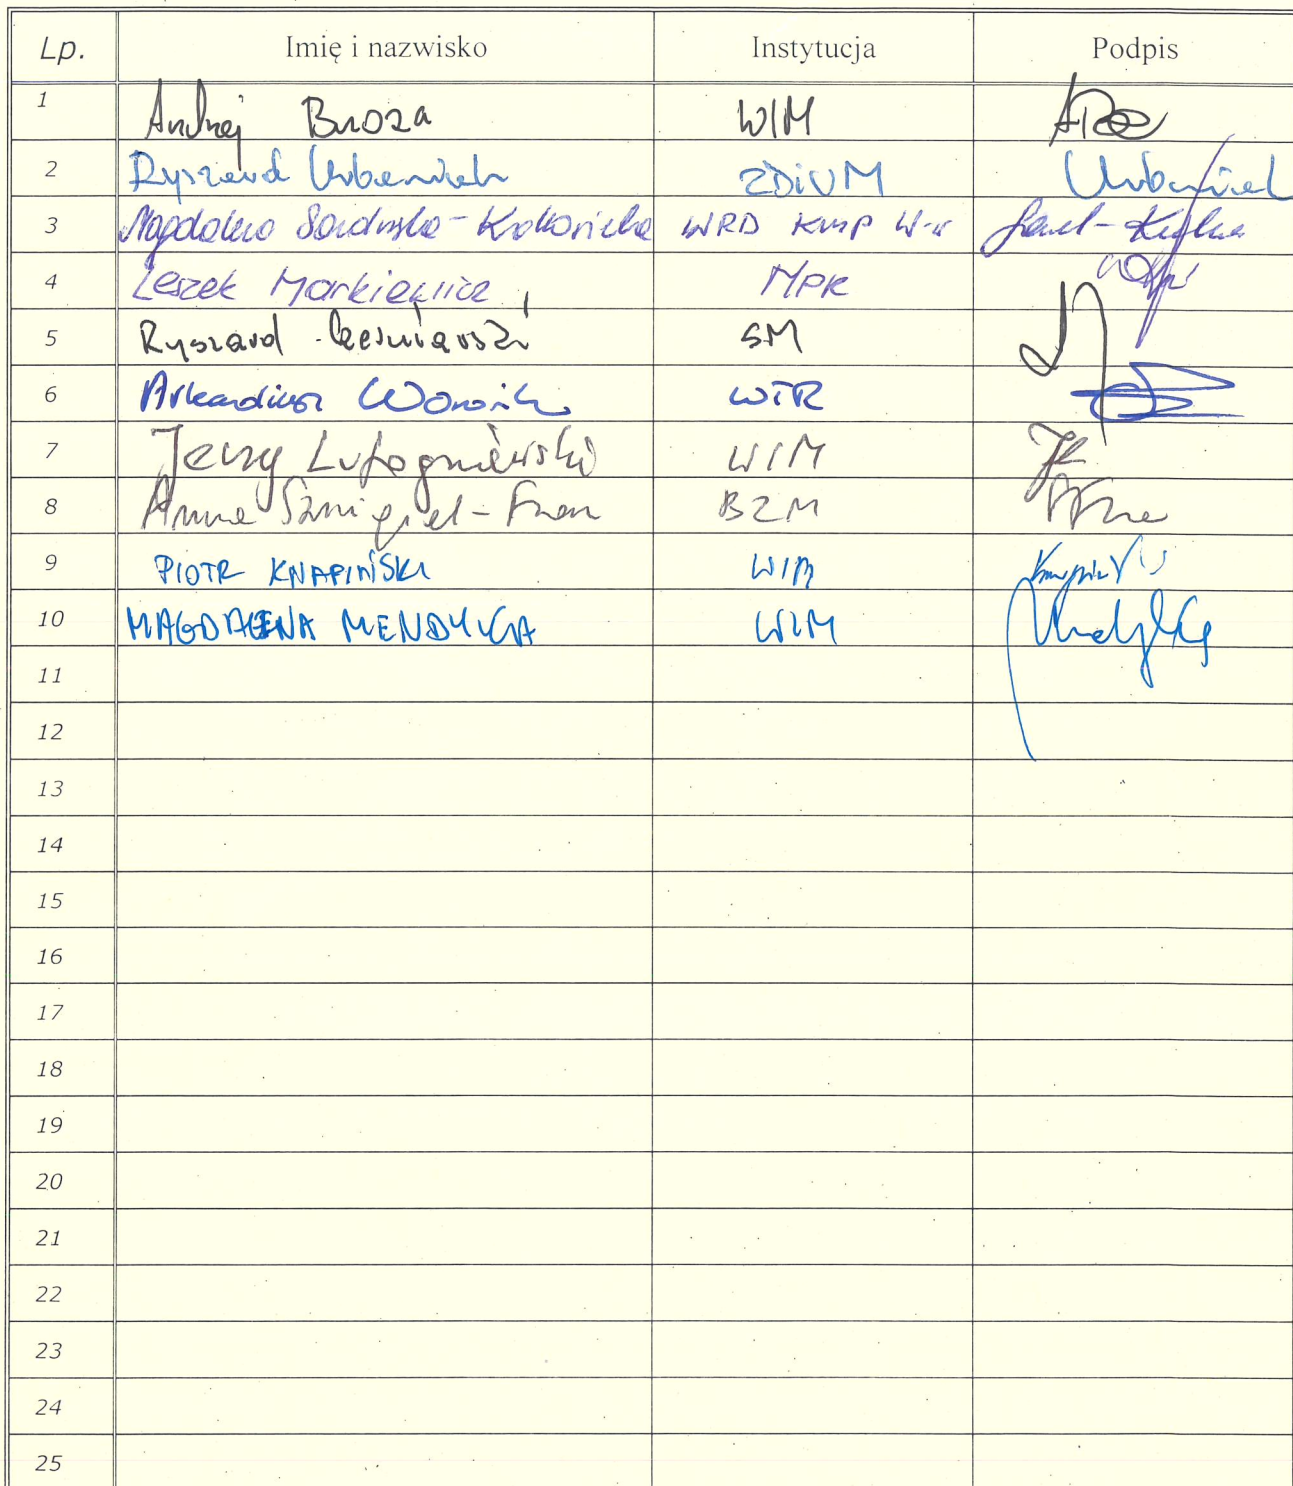 Lp. Imię i nazwisko Instytucja Podpis
1 Andrzej Broza WIM
2 Ryszard Urbaniak ZDiUM Urbaniak
3 Magdalena WRD KMP W-w
4 Leszek Markiewicz MPK
5 Ryszard SM
6 Arkadiusz WTR
7 Jerzy Lutogniewski WIM
8 Anna Szmigiel-Fran BZM
9 PIOTR KNAPIŃSKI WIM
10 MAGDALENA MENDYKA WIM
11
12
13
14
15
16
17
18
19
20
21
22
23
24
25